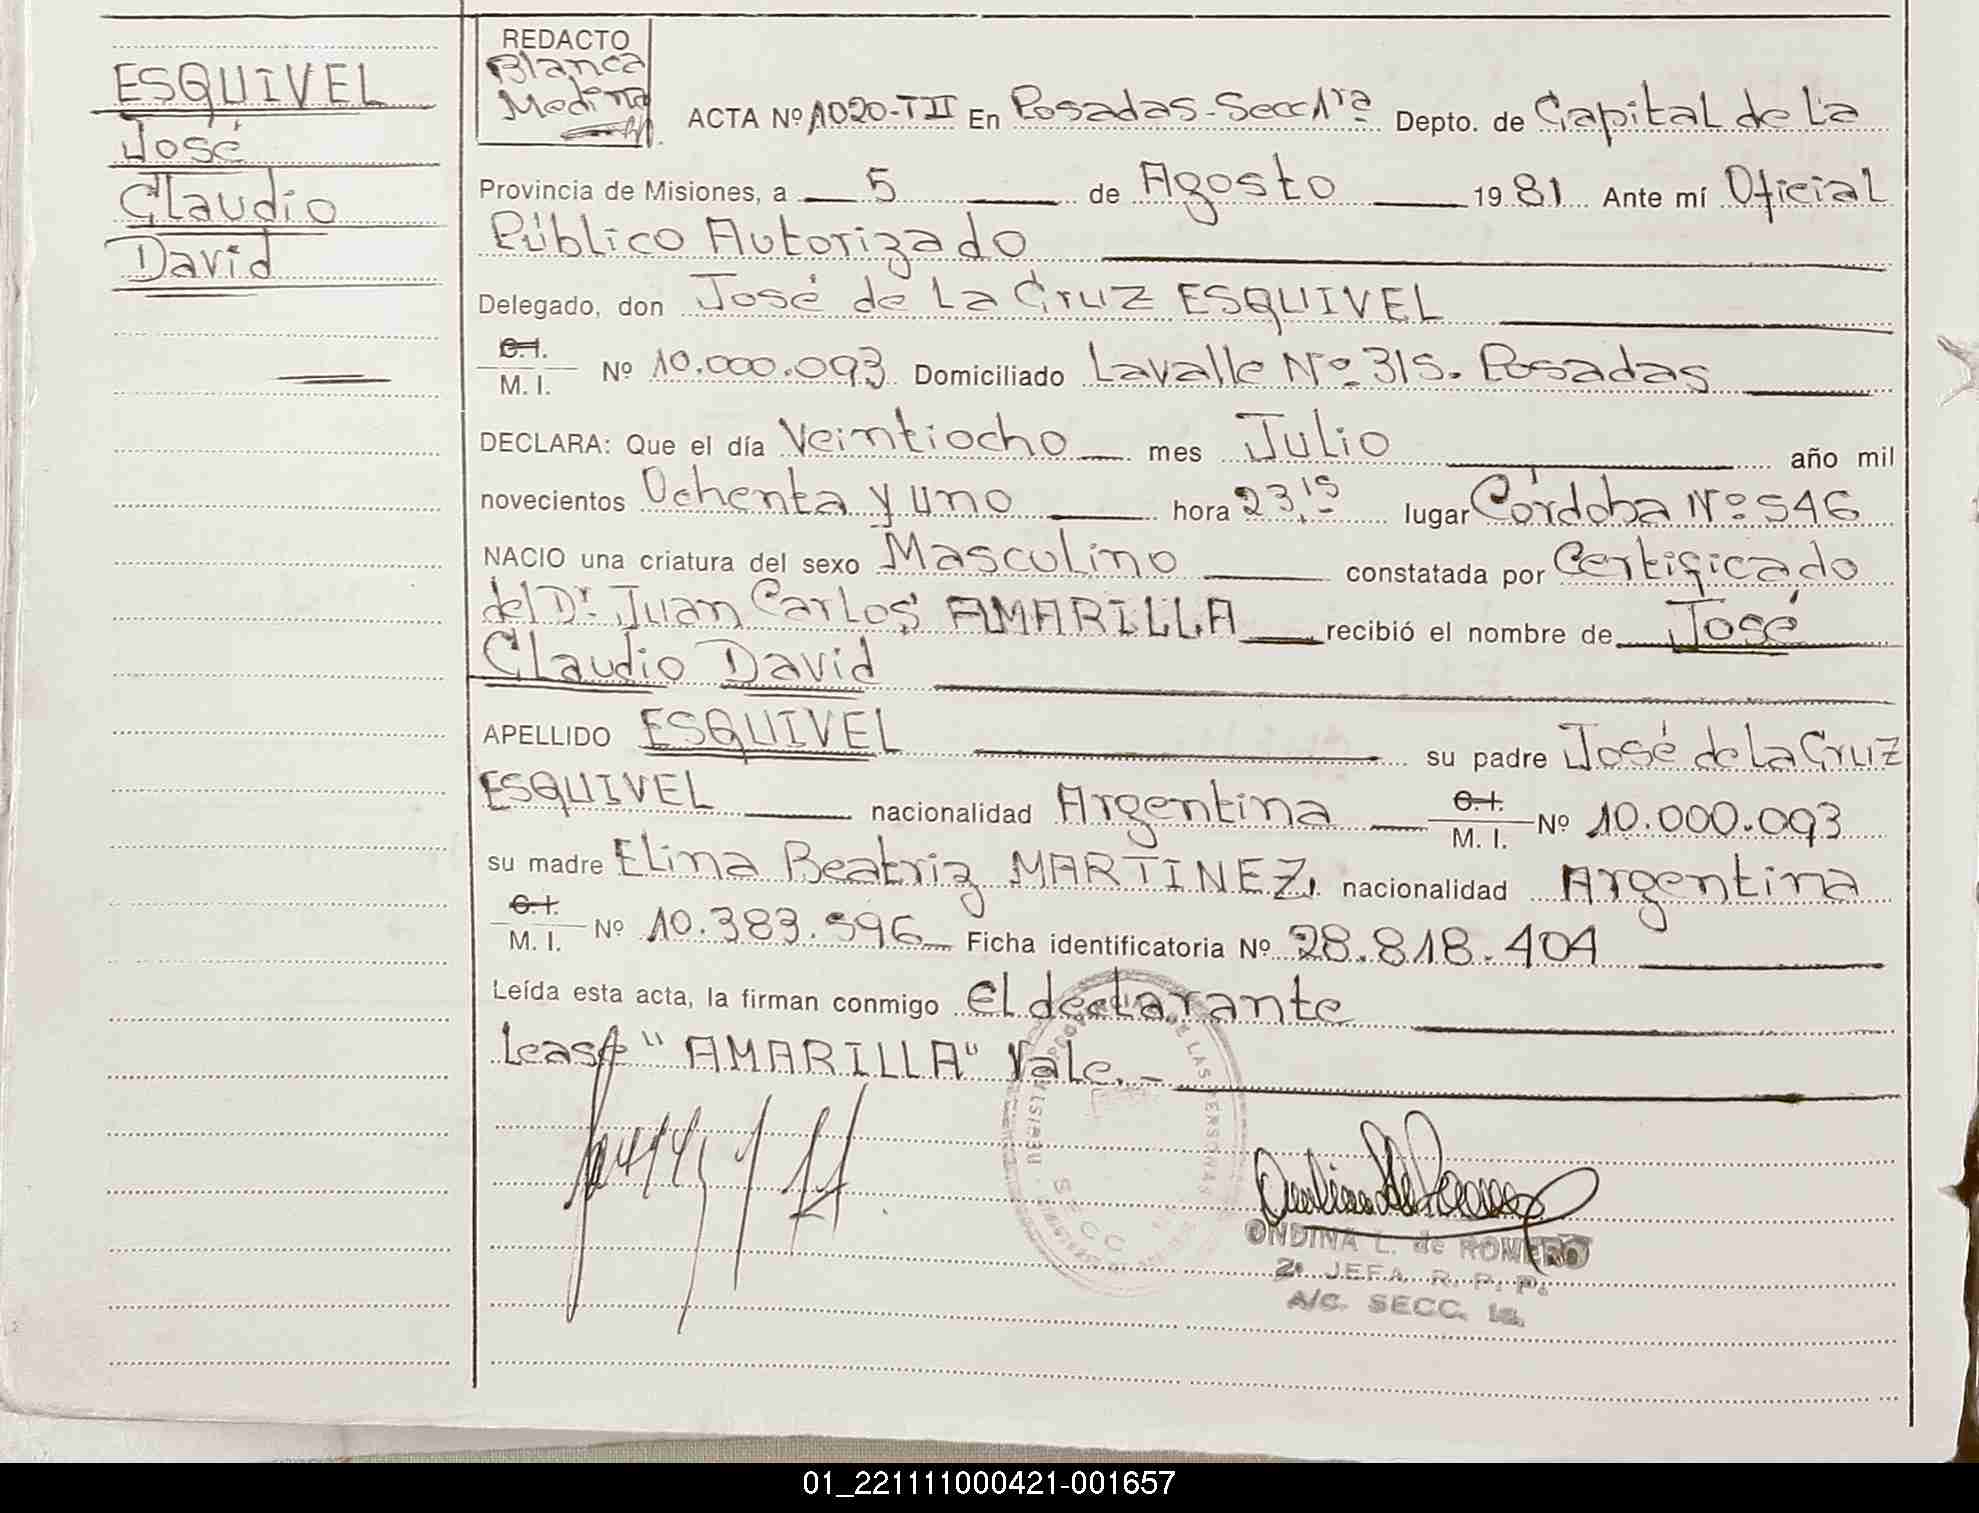 ESQUIVEL
José
Claudio
David
REDACTO
Blanca
Medina
ACTA Nº 1020-TII En Posadas-Secc 1ra Depto. de Capital de La
Provincia de Misiones, a 5 de Agosto 1981 Ante mí Oficial
Público Autorizado
Delegado, don José de La Cruz ESQUIVEL
C.I.
M. I. Nº 10.000.093 Domiciliado Lavalle Nº 315. Posadas
DECLARA: Que el día Veintiocho mes Julio año mil
novecientos Ochenta y uno hora 23,15 lugar Córdoba Nº 546
NACIO una criatura del sexo Masculino constatada por Certificado
del Dr. Juan Carlos AMARILLA recibió el nombre de José
Claudio David
APELLIDO ESQUIVEL su padre José de La Cruz
ESQUIVEL nacionalidad Argentina C.I. M. I. Nº 10.000.093
su madre Elina Beatriz MARTINEZ, nacionalidad Argentina
C.I.
M. I. Nº 10.383.596 Ficha identificatoria Nº 28.818.404
Leída esta acta, la firman conmigo El declarante
Lease "AMARILLA" Vale.-
DE LAS PERSONAS
SECC
ONDINA L. de ROMERO
2ª JEFA R. P. P.
A/C. SECC. 1a.
01_221111000421-001657